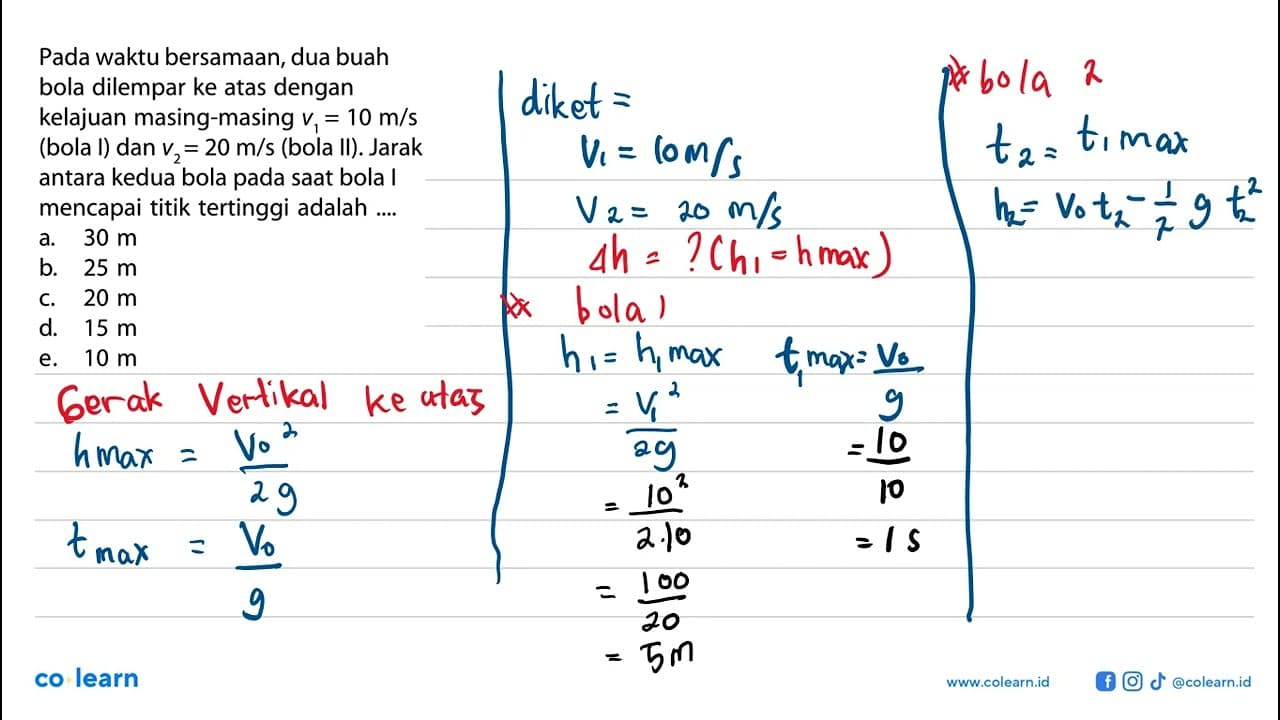 Pada waktu bersamaan, dua buah
bola dilempar ke atas dengan
kelajuan masing-masing v₁ = 10 m/s
(bola I) dan v₂ = 20 m/s (bola II). Jarak
antara kedua bola pada saat bola I
mencapai titik tertinggi adalah ....
a. 30 m
b. 25 m
c. 20 m
d. 15 m
e. 10 m
Gerak Vertikal ke atas
hmax = V₀²/2g
tmax = V₀/g
diket =
V₁ = 10 m/s
V₂ = 20 m/s
Δh = ? (h₁ = hmax)
** bola 1
h₁ = h₁max
= V₁²/2g
= 10²/2.10
= 100/20
= 5m
t₁max = V₀/g
= 10/10
= 1 s
** bola 2
t₂ = t₁max
h₂ = V₀t₂ - 1/2 g t₂²
co learn
www.colearn.id
@colearn.id